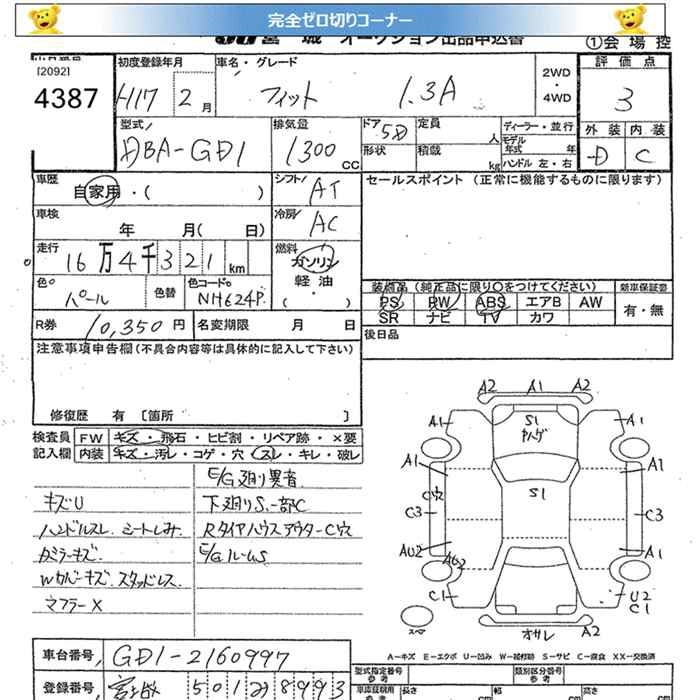 完全ゼロ切りコーナー
宮城 オークション出品申込書 ①会場控
[2092]
4387
初度登録年月
H17 2月
車名・グレード
フィット 1.3A
2WD・4WD
評価点
3
外装 内装
D C
型式
DBA-GD1
排気量
1300cc
ドア 5D
形状
定員 人
積載 kg
ディーラー・並行
モデル年式 年式
ハンドル 左・右
車歴
自家用・( )
車検
年 月( 日)
走行
16万4千321km
色
パール
色替
色コードNo
NH624P
シフト
AT
冷房
AC
燃料
ガソリン
軽油
( ・ )
セールスポイント (正常に機能するものに限ります)
装備品 (純正品に限り○をつけてください)
PS PW ABS エアB AW
SR ナビ TV カワ
新車保証書
有・無
後日品
R券 10,350円
名変期限 月 日
注意事項申告欄(不具合内容等は具体的に記入して下さい)
修復歴 有 [箇所 ]
検査員記入欄
FW キズ・飛石・ヒビ割・リペア跡・×要
内装 キズ・汚レ・コゲ・穴・スレ・キレ・破レ
E/G廻り異音
キズU
下廻りS、一部C
ハンドルスレ、シートしみ
RタイヤハウスアウターC穴
カガミラーキズ
E/GルームS
Wカバーキズ、スタッドレス
マフラーX
A2 A1 A2
A1 S1 ヤハゲ A1
A1 A1
C穴 S1
C3 C3
AU2 AU2 A1
C1 U2 C1
スペア オサレ A2
A=キズ E=エクボ U=凹み W=補修跡 S=サビ C=腐食 XX=交換済
車台番号 GD1-2160997
登録番号 宮城 501 8993
型式指定番号 参考
類別区分番号 参考
長さ cm 幅 cm 高さ cm